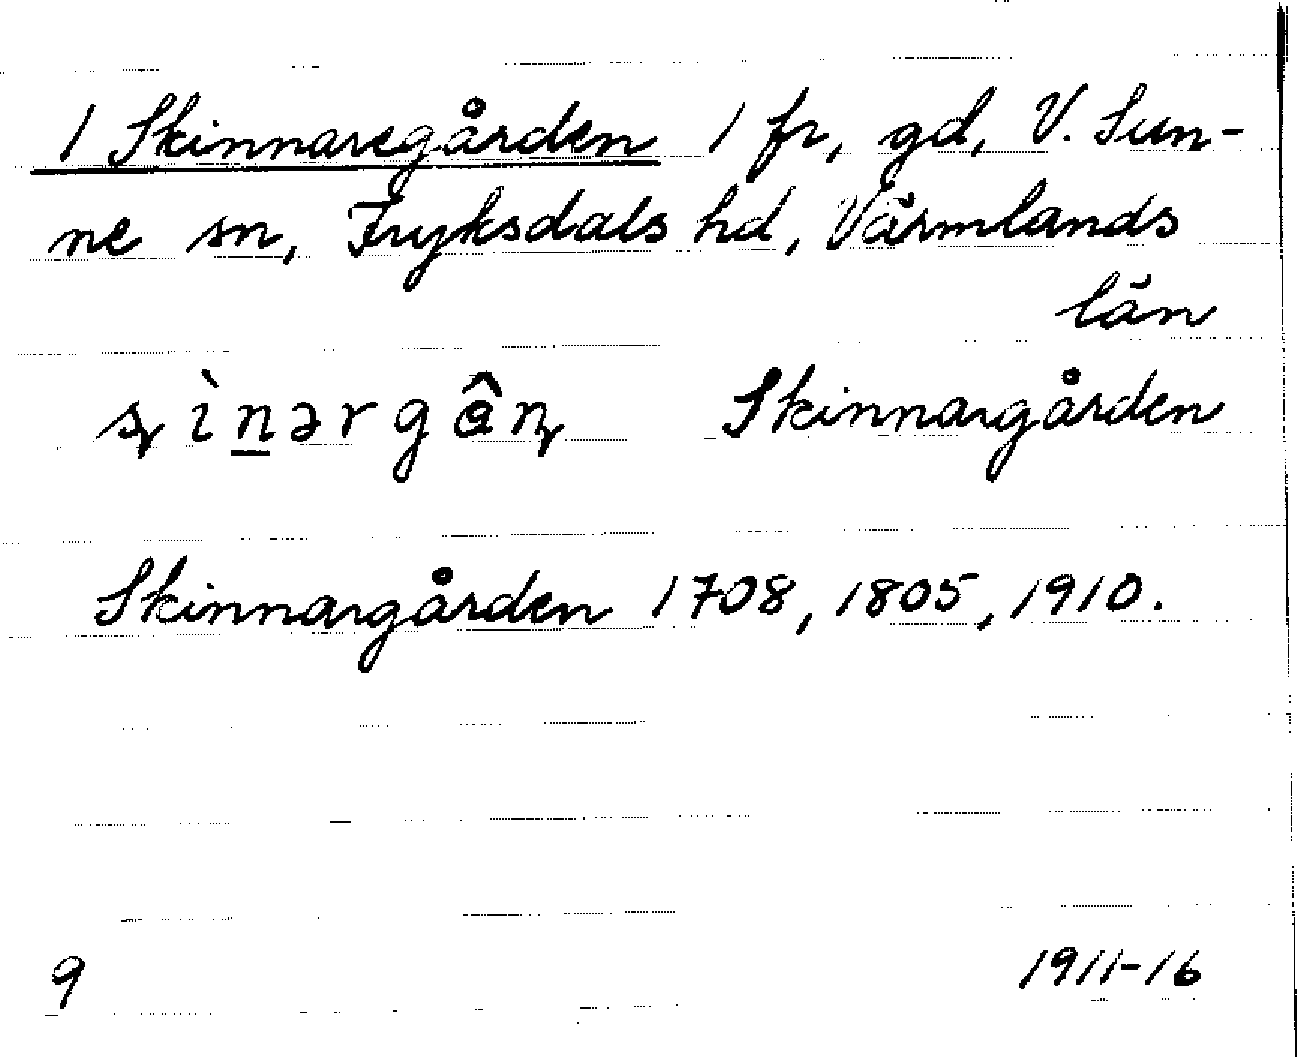 1 Skinnaregården 1 fr, gd, V. Sun-
ne sn, Fryksdals hd, Värmlands
län
ʂìn̲ərgân̡ Skinnargården
Skinnargården 1708, 1805, 1910.
9 1911-16